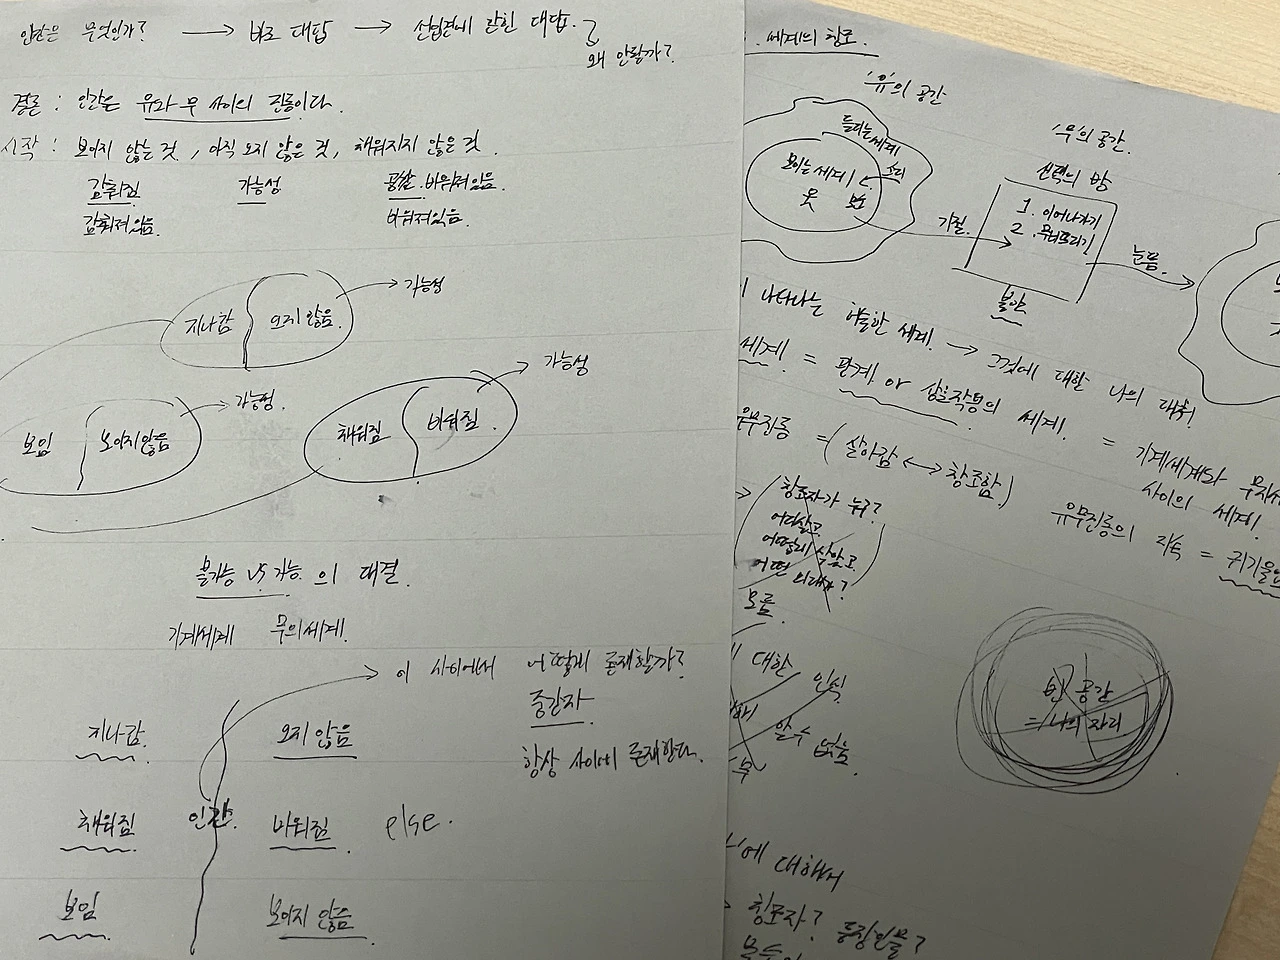 인간은 무엇인가? → 바로 대답 → 선입견에 갇힌 대답.
왜 안될까?
결론 : 인간은 유와 무 사이의 진동이다.
시작 : 보이지 않는 것, 아직 오지 않은 것, 채워지지 않은 것.
감춰짐 가능성 공간. 비워져있음.
감춰져있음. 비워져있음.
지나감 오지 않음. → 가능성
보임 보이지 않음 → 가능성.
채워짐 비워짐. → 가능성
불가능 vs 가능 의 대결.
기계세계 무의세계.
→ 이 사이에서 어떻게 존재할까?
중간자
항상 사이에 존재한다.
지나감. 오지 않음
채워짐 인간. 비워짐 else.
보임 보이지 않음
세계의 창조
'유'의 공간
들리는 세계
소리
보이는 세계
못
거절.
'무'의 공간.
선택의 방
1. 이어나가기
2. 무너뜨리기
불안
눈뜸.
나타나는 세계. → 그것에 대한 나의
세계! = 관계 or 상호작용의 세계! = 기계세계와
사이의 세계!
유무진동 = (살아감 ↔ 창조함)
유무진동의 지속 =
창조자가 누구?
어디살고
어떻게 살았고
어떤
모름.
대한 인식
알 수 없음
빈 공간
= 나의 자리
에 대해서
창조자? 등장인물?